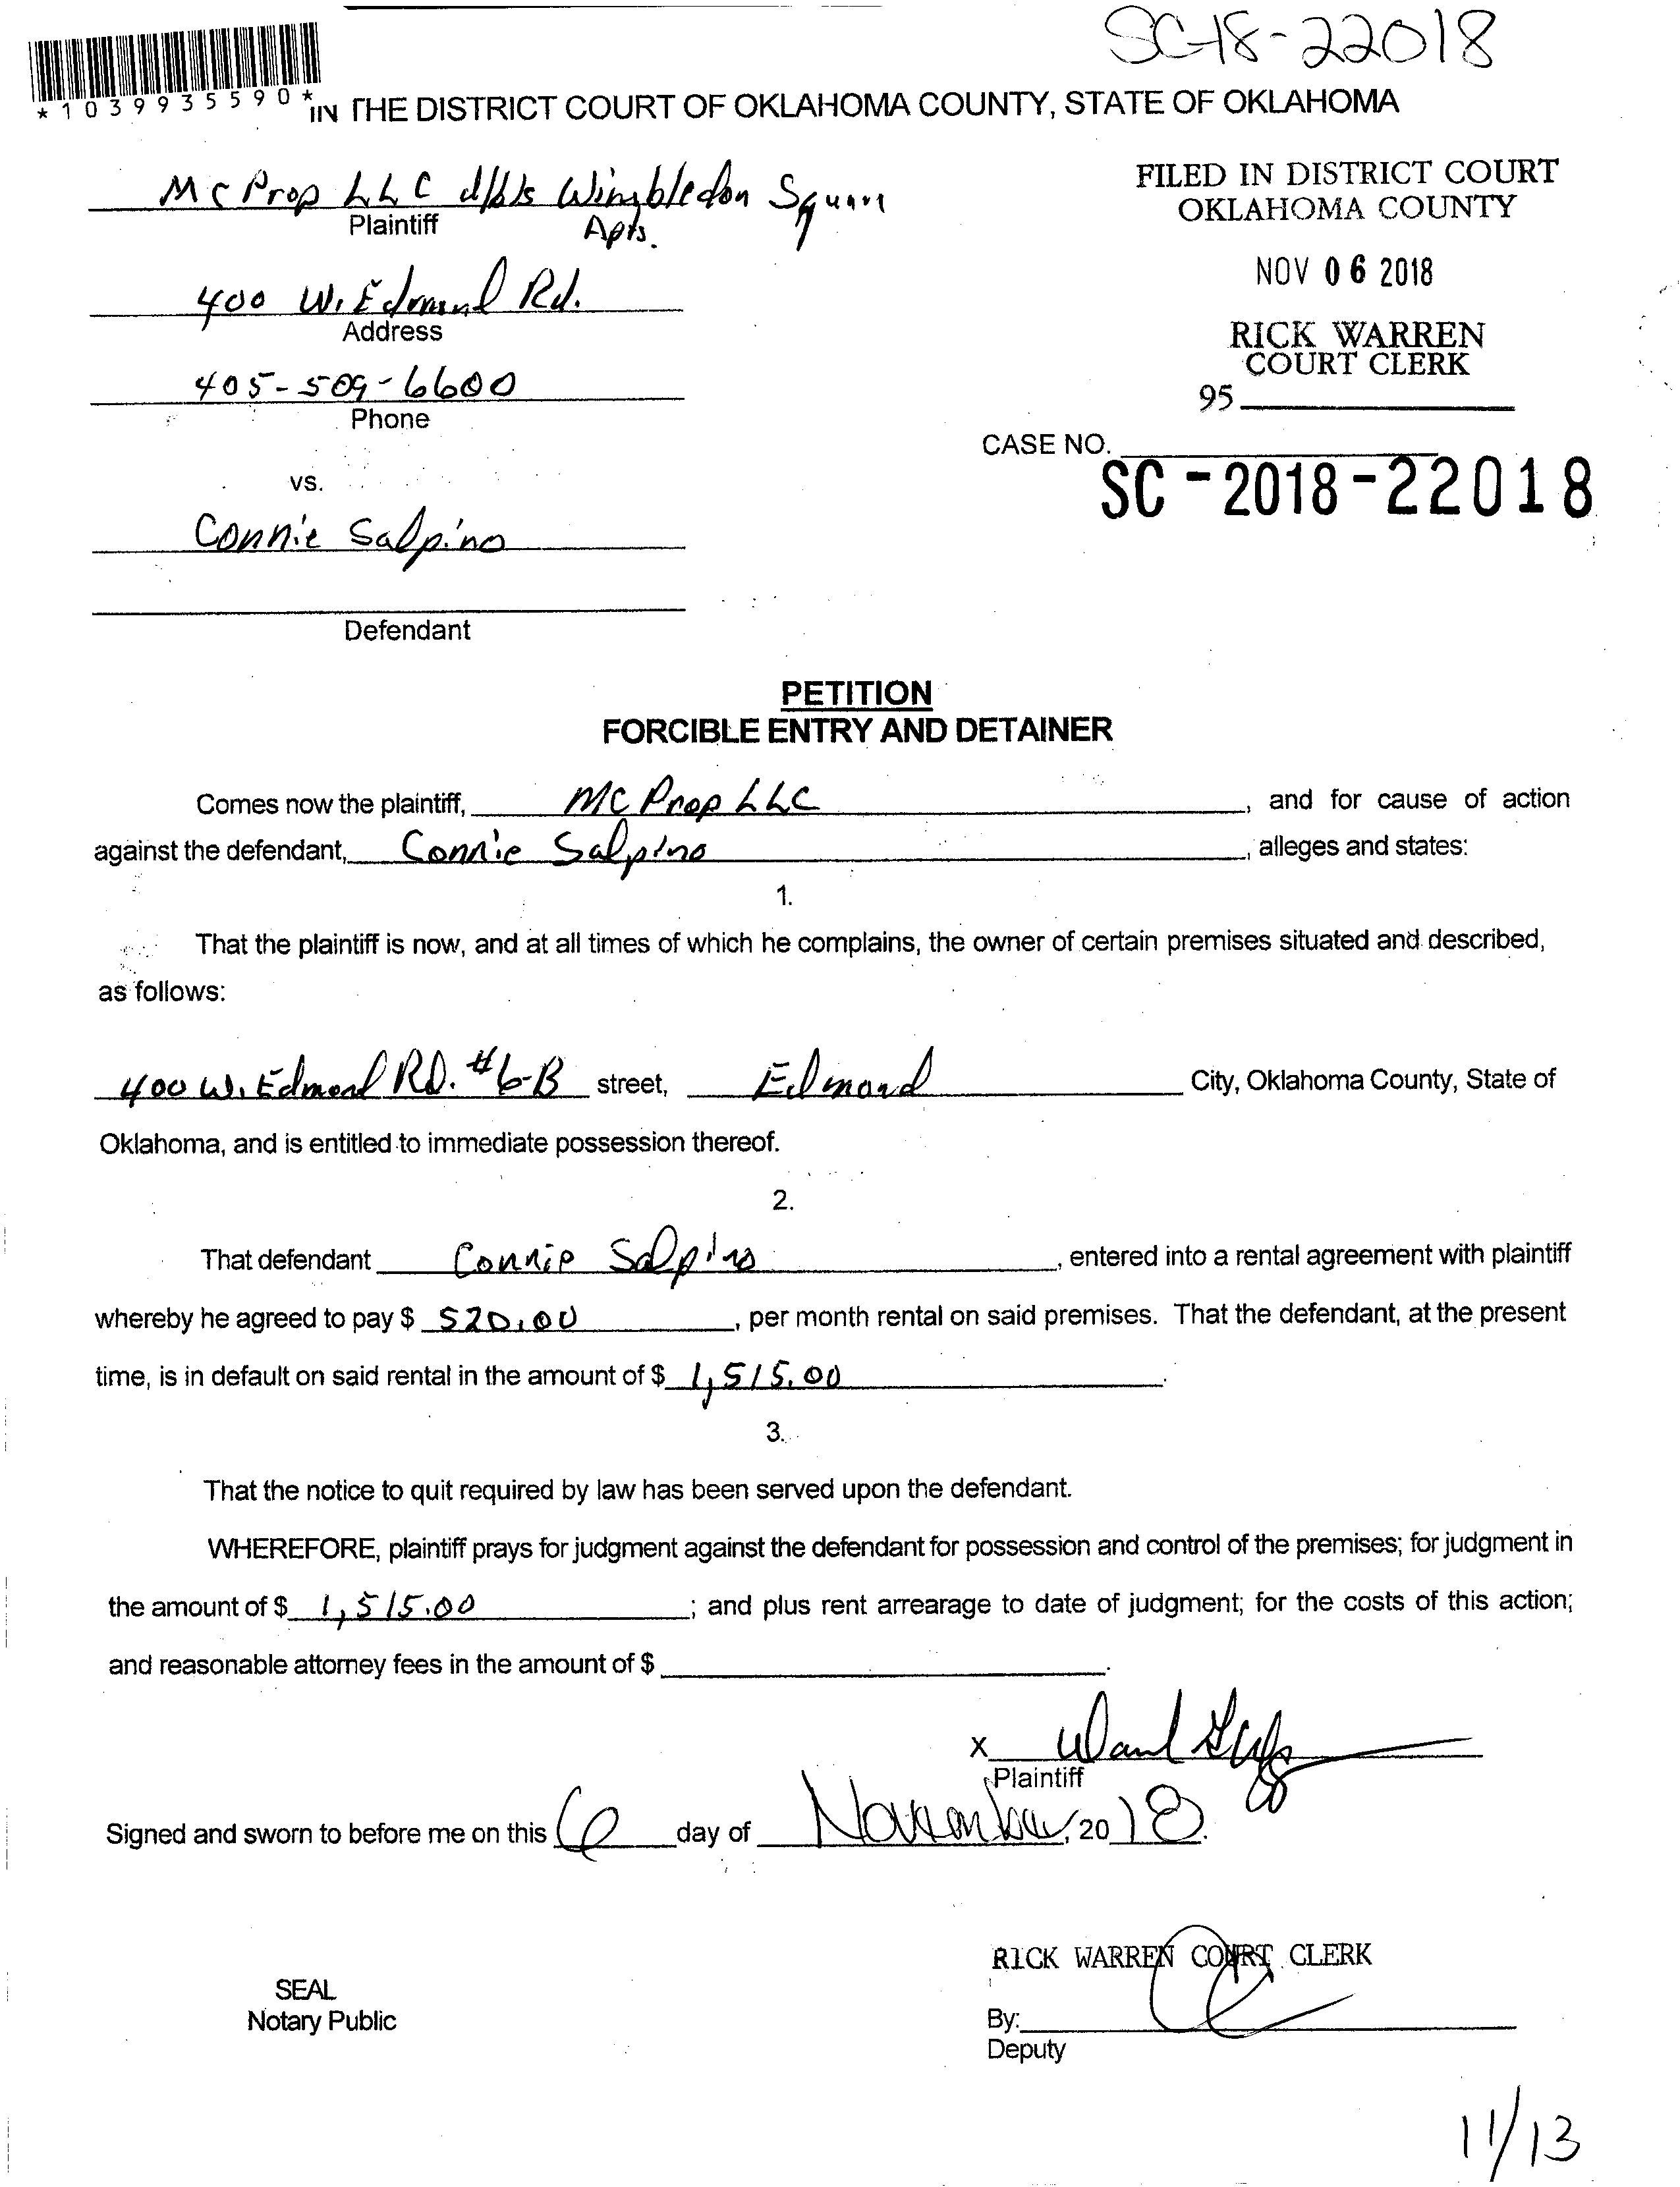 SC-18-22018
*1039935590*
IN THE DISTRICT COURT OF OKLAHOMA COUNTY, STATE OF OKLAHOMA
MC Prop LLC d/b/s Wimbledon Square
Plaintiff Apts.
FILED IN DISTRICT COURT
OKLAHOMA COUNTY
NOV 06 2018
RICK WARREN
COURT CLERK
95
400 W. Edmond Rd.
Address
405-509-6600
Phone
CASE NO.
SC-2018-22018
vs.
Connie Salpino
Defendant
PETITION
FORCIBLE ENTRY AND DETAINER
Comes now the plaintiff, MC Prop LLC, and for cause of action
against the defendant, Connie Salpino, alleges and states:
1.
That the plaintiff is now, and at all times of which he complains, the owner of certain premises situated and described,
as follows:
400 W. Edmond Rd. #6-B street, Edmond City, Oklahoma County, State of
Oklahoma, and is entitled to immediate possession thereof.
2.
That defendant Connie Salpino, entered into a rental agreement with plaintiff
whereby he agreed to pay $ 520.00, per month rental on said premises. That the defendant, at the present
time, is in default on said rental in the amount of $ 1,515.00.
3.
That the notice to quit required by law has been served upon the defendant.
WHEREFORE, plaintiff prays for judgment against the defendant for possession and control of the premises; for judgment in
the amount of $ 1,515.00; and plus rent arrearage to date of judgment; for the costs of this action;
and reasonable attorney fees in the amount of $ .
X
Plaintiff
Signed and sworn to before me on this 6 day of November, 2018.
RICK WARREN COURT CLERK
SEAL
Notary Public
By:
Deputy
11/13